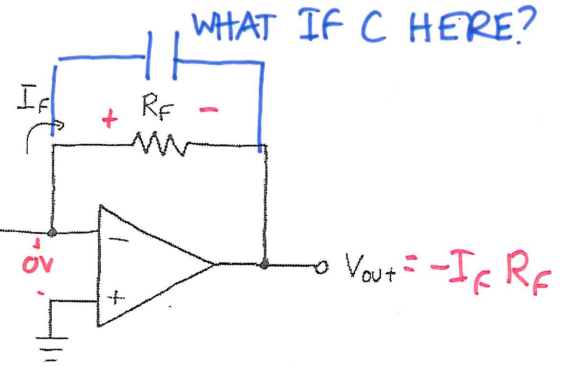 WHAT IF C HERE?
I_F
+ R_F -
-
0V
+
V_out = -I_F R_F